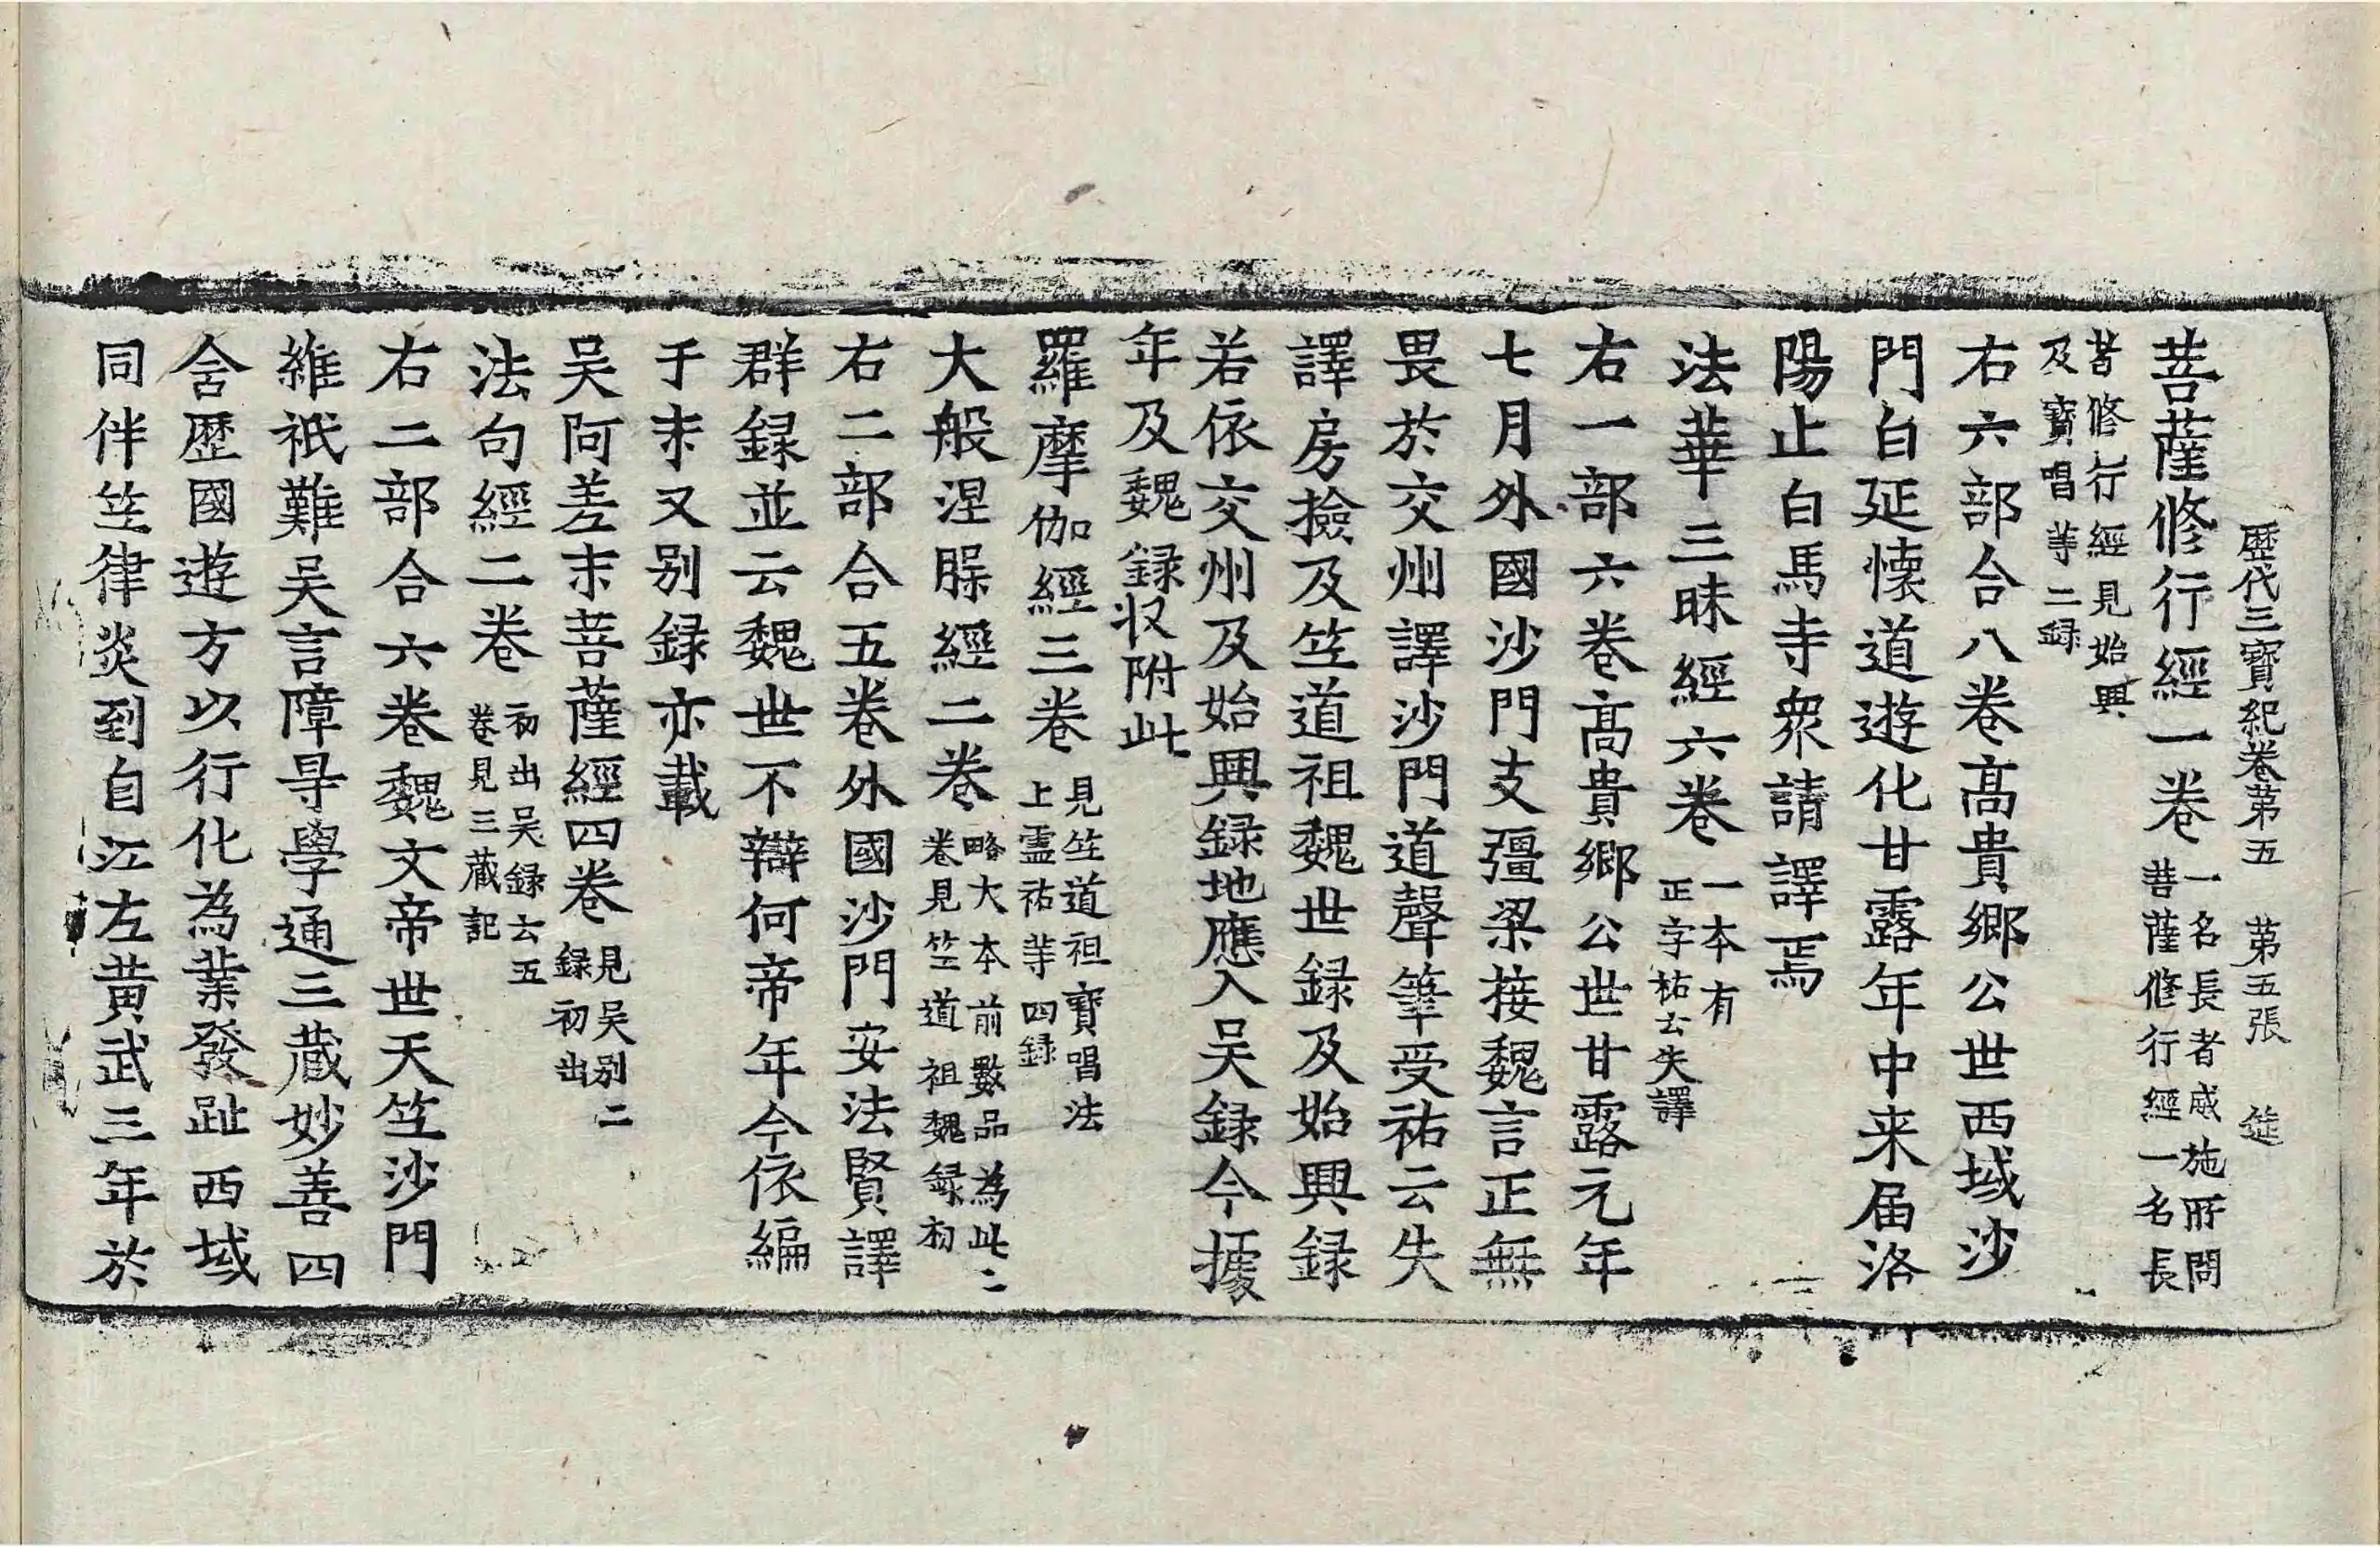 歷代三寶紀卷第五 第五張 筵
菩薩修行經一卷 一名長者威施所問菩薩修行經一名長
者修行經見始興及寶唱等二錄
右六部合八卷高貴鄉公世西域沙
門白延懷道遊化甘露年中来届洛
陽止白馬寺衆請譯焉
法華三昧經六卷 一本有正字祐云失譯
右一部六卷高貴鄉公世甘露元年
七月外國沙門支彊梁接魏言正無
畏於交州譯沙門道聲筆受祐云失
譯房撿及竺道祖魏世録及始興録
若依交州及始興録地應入吴録今據
年及魏録収附此
羅摩伽經三卷 見竺道祖寶唱法上靈祐等四録
大般涅槃經二卷 略大本前數品為此二卷見竺道祖魏録初
右二部合五卷外國沙門安法賢譯
群録並云魏世不辯何帝年今依編
于末又别録亦載
吴阿差末菩薩經四卷 見吴别二録初出
法句經二卷 初出吴録云五卷見三蔵記
右二部合六卷魏文帝世天竺沙門
維祇難吴言障㝵學通三蔵妙善四
含歷國遊方以行化為業發趾西域
同伴竺律炎到自江左黃武三年於